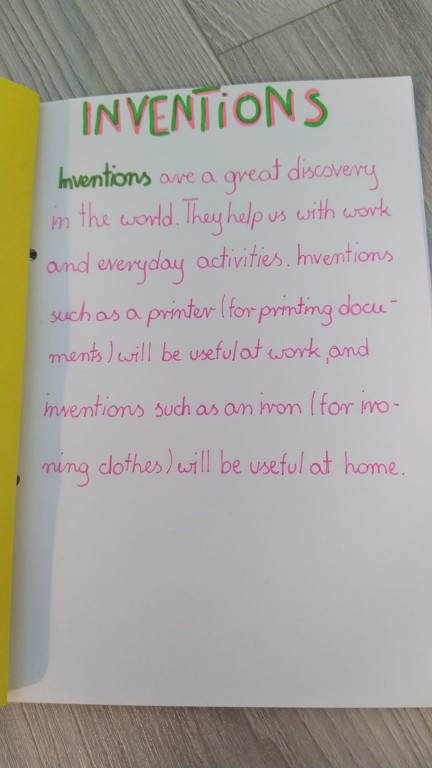 INVENTIONS
Inventions are a great discovery
in the world. They help us with work
and everyday activities. Inventions
such as a printer (for printing docu-
ments) will be useful at work, and
inventions such as an iron (for iro-
ning clothes) will be useful at home.